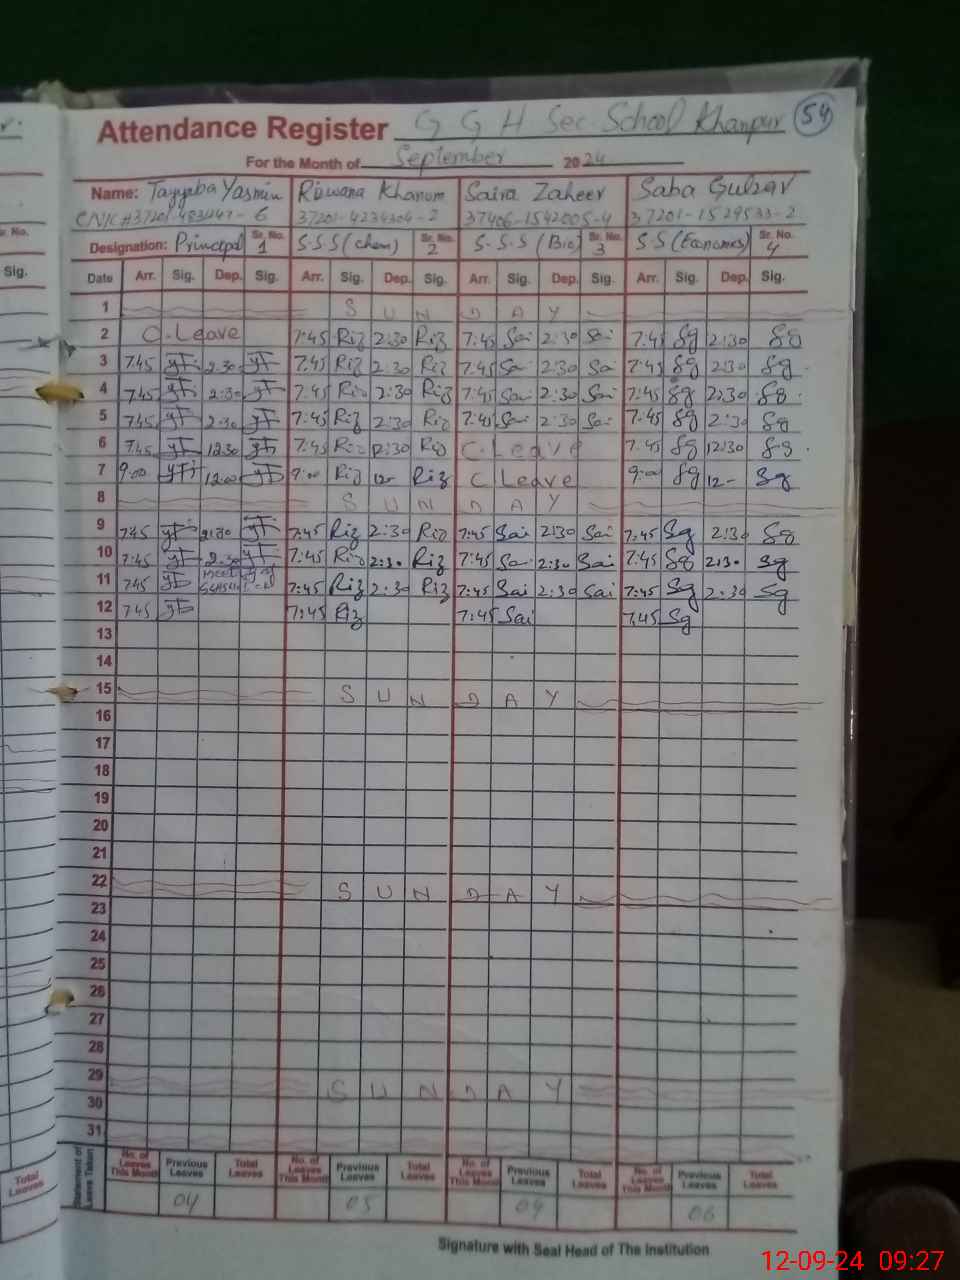 Attendance Register G G H Sec. School Khanpur 54
For the Month of September 2024
Name: Tayyaba Yasmin Rizwana Khanum Saira Zaheer Saba Gulzar
37201-4234304-2 37406-1542005-4 37201-1529533-2
Designation: Principal Sr. No. 1 S.S.S (Chem) Sr. No. 2 S.S.S (Bio) Sr. No. 3 S.S (Economics) Sr. No. 4
Date Arr. Sig. Dep. Sig. Arr. Sig. Dep. Sig. Arr. Sig. Dep. Sig. Arr. Sig. Dep. Sig.
1 S U N D A Y
2 C. Leave 7:45 Riz 2:30 Riz 7:45 Sai 2:30 Sai 7:45 Sg 2:30 Sg
3 7.45 2:30 7:45 Riz 2:30 Riz 7:45 Sai 2:30 Sai 7:45 Sg 2:30 Sg
4 7:45 2:30 7:45 Riz 2:30 Riz 7:45 Sai 2:30 Sai 7:45 Sg 2:30 Sg
5 7:45 2:30 7:45 Riz 2:30 Riz 7:45 Sai 2:30 Sai 7:45 Sg 2:30 Sg
6 7:45 12:30 7:45 Riz 12:30 Riz C. Leave 7:45 Sg 12:30 Sg
7 9:00 12:00 9:00 Riz 12- Riz C Leave 9:00 Sg 12- Sg
8 S U N D A Y
9 7:45 2:30 7:45 Riz 2:30 Riz 7:45 Sai 2:30 Sai 7:45 Sg 2:30 Sg
10 7:45 2:30 7:45 Riz 2:30 Riz 7:45 Sai 2:30 Sai 7:45 Sg 2:30 Sg
11 7:45 7:45 Riz 2:30 Riz 7:45 Sai 2:30 Sai 7:45 Sg 2:30 Sg
12 7:45 7:45 Riz 7:45 Sai 7:45 Sg
13
14
15 S U N D A Y
16
17
18
19
20
21
22 S U N D A Y
23
24
25
26
27
28
29 S U N D A Y
30
31
Statement of Leave Taken No. of Leaves This Month Previous Leaves Total Leaves No. of Leaves This Month Previous Leaves Total Leaves No. of Leaves This Month Previous Leaves Total Leaves No. of Leaves This Month Previous Leaves Total Leaves
04 05 04 06
Signature with Seal Head of The Institution
Sig.
Total Leaves
12-09-24 09:27